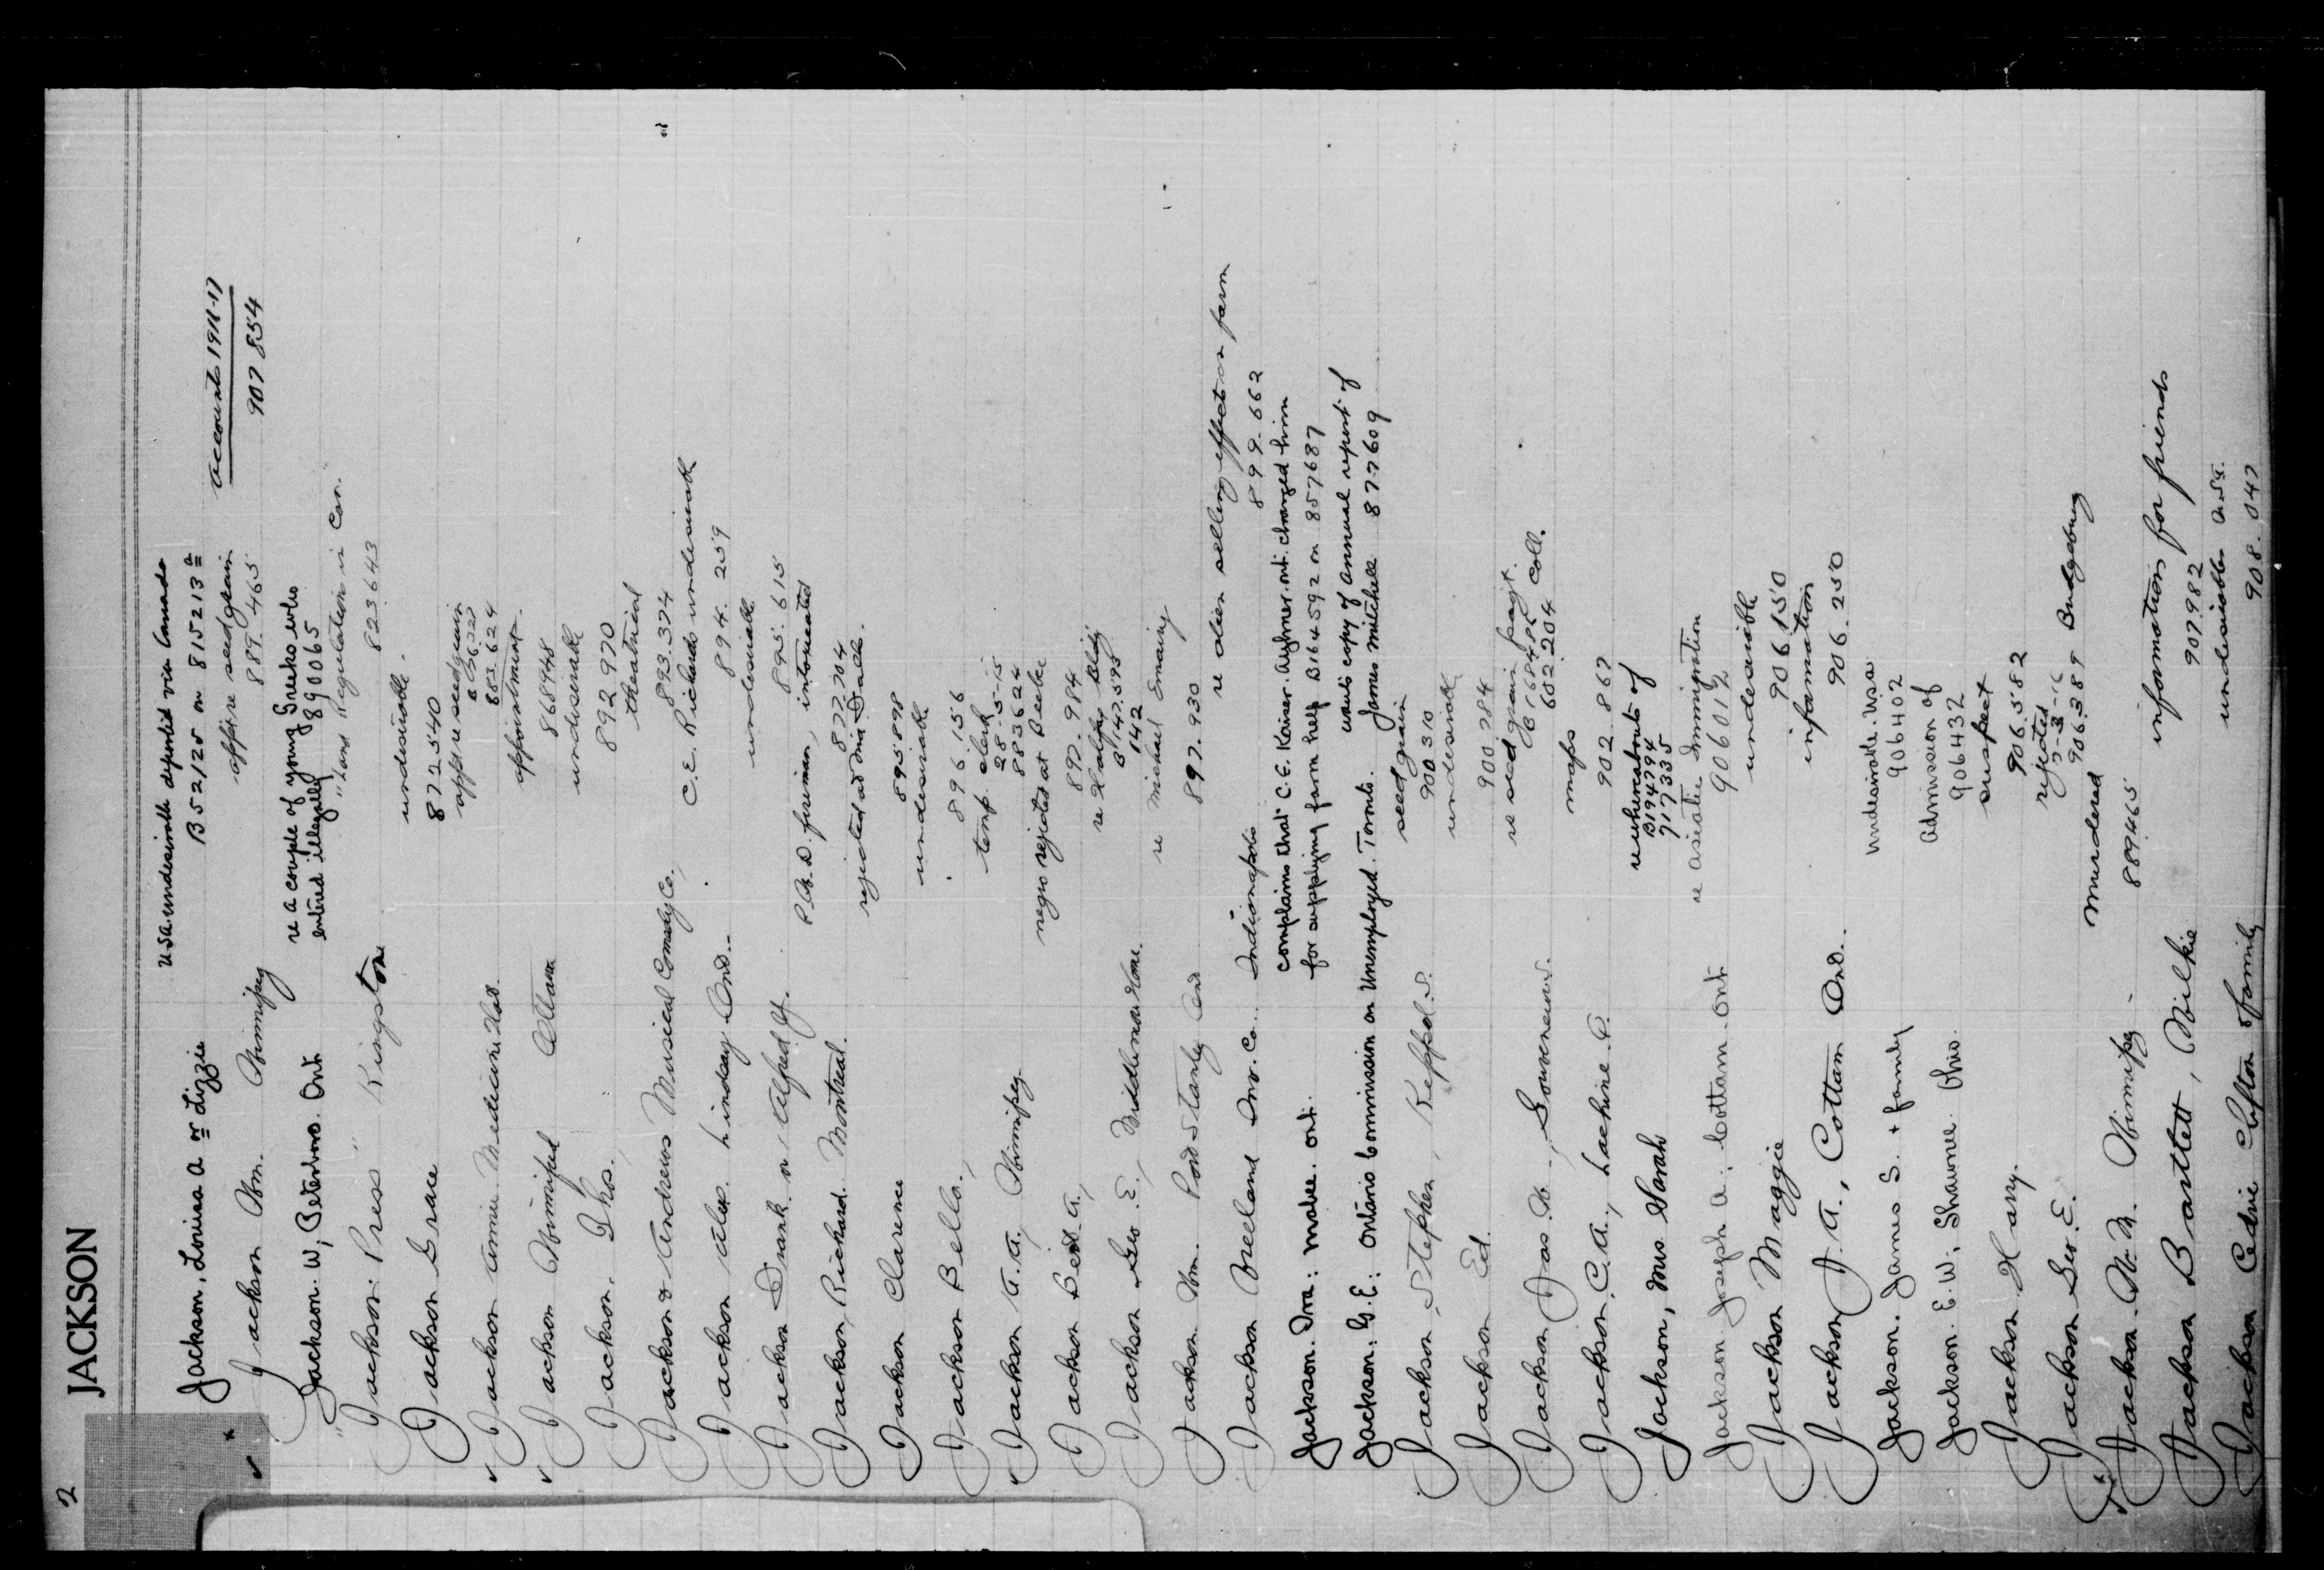 2
JACKSON
U.S.A. undesirable deported via Canada
Jackson, Louisa A or Lizzie B52125 on 815213
accounts 1916-17
907 854
Jackson Wm. Winnipeg app. re seed grain
889.465
Jackson. W, Peterboro. Ont re a couple of young Greeks who
entered illegally 890065
"Jackson: Press" Kingston "Land Regulation in Can."
823643
Jackson Grace undesirable.
872540
Jackson Annie Medicine Hat app re seed grain
883.624
Jackson Winnifred Ottawa appointment.
868948
Jackson. Thos. undesirable
892 970
Jackson & Andrews Musical Comedy Co., theatrical
893.374
Jackson Alex. Lindsay Ont.. C.E. Richards undesirable
894.259
Jackson Frank or Alfred Y. undesirable
895.615
P.A.D. foreman, intoxicated
Jackson, Richard. Montreal. 877.704
rejected adm
Jackson Clarence 895898
undesirable
Jackson Bella, 896.156
Jackson A.A., Winnipeg temp. clerk
28-5-15
883624
Jackson Bert A, negro rejected at Beebe
897.984
Jackson Geo. E, re Halifax Bldg
B147.593
142
Jackson Wm. Port Stanley Ont re Michael
897.930
Jackson Vreeland Inv. Co.. Indianapolis re alien selling effects on farm
899.662
Jackson. Ira: Mabee. Ont. Complains that C.E. Kaiser. Aylmer. Ont. charged him
for supplying farm help B164592 on 857687
Jackson: G.E: Ontario Commission on Unemployed. Toronto. wants copy of annual report of
James Mitchell 877609
Jackson, Stephen, seed grain
900310
Jackson Ed. undesirable
900.784
Jackson Jas. W., Gouverneur. re seed grain payt.
602204 Coll.
Jackson, C.A., Lachine P. maps
902.867
Jackson, Mrs Sarah re whereabouts of
B194794
717335
Jackson Joseph A, Cottam Ont re Asiatic Immigration
906012
Jackson Maggie undesirable
906.150
Jackson J.A., Cottam Ont.. information
906.250
Jackson. James S. + family Undesirable. U.S.A.
906402
Jackson. E.W, Shawnee Ohio. Admission of
906432
Jackson Harry. suspect
906.582
Jackson Geo. E. rejected
7-3-16
906.289 Bridgeburg
Jackson. W.M. Winnipeg - Murdered
889465
Jackson Bartlett, Wilkie information for friends
907.982
Jackson Cedric Clifton & family undesirables
908.047